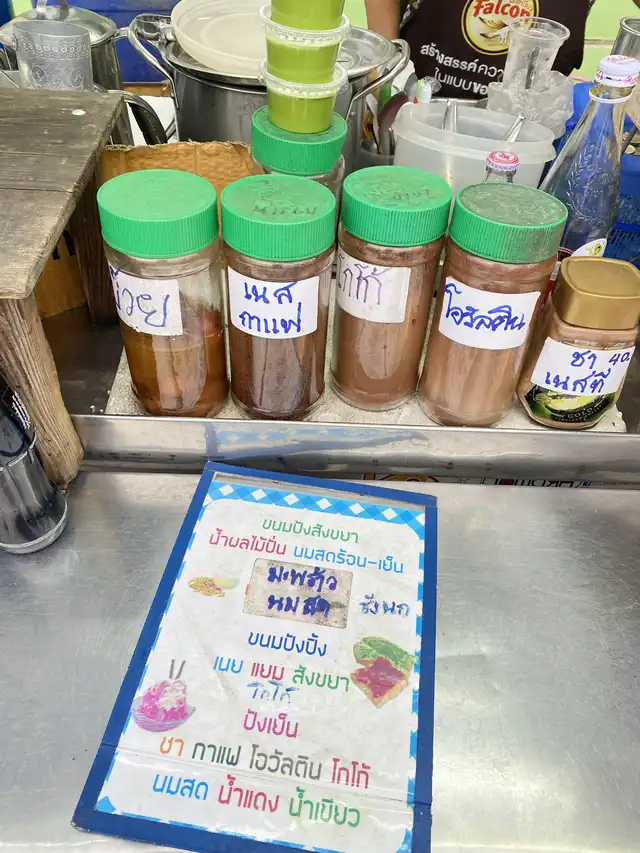 falcon
สร้างสรรค์ควา
ในแบบของ
เนส
กาแฟ
โกโก้
โอวัลติน
ชา 40
เนสที
ขนมปังสังขยา
น้ำผลไม้ปั่น นมสดร้อน-เย็น
มะพร้าว
นมสด
รังนก
ขนมปังปิ้ง
เนย แยม สังขยา
โกโก้
ปังเย็น
ชา กาแฟ โอวัลติน โกโก้
นมสด น้ำแดง น้ำเขียว